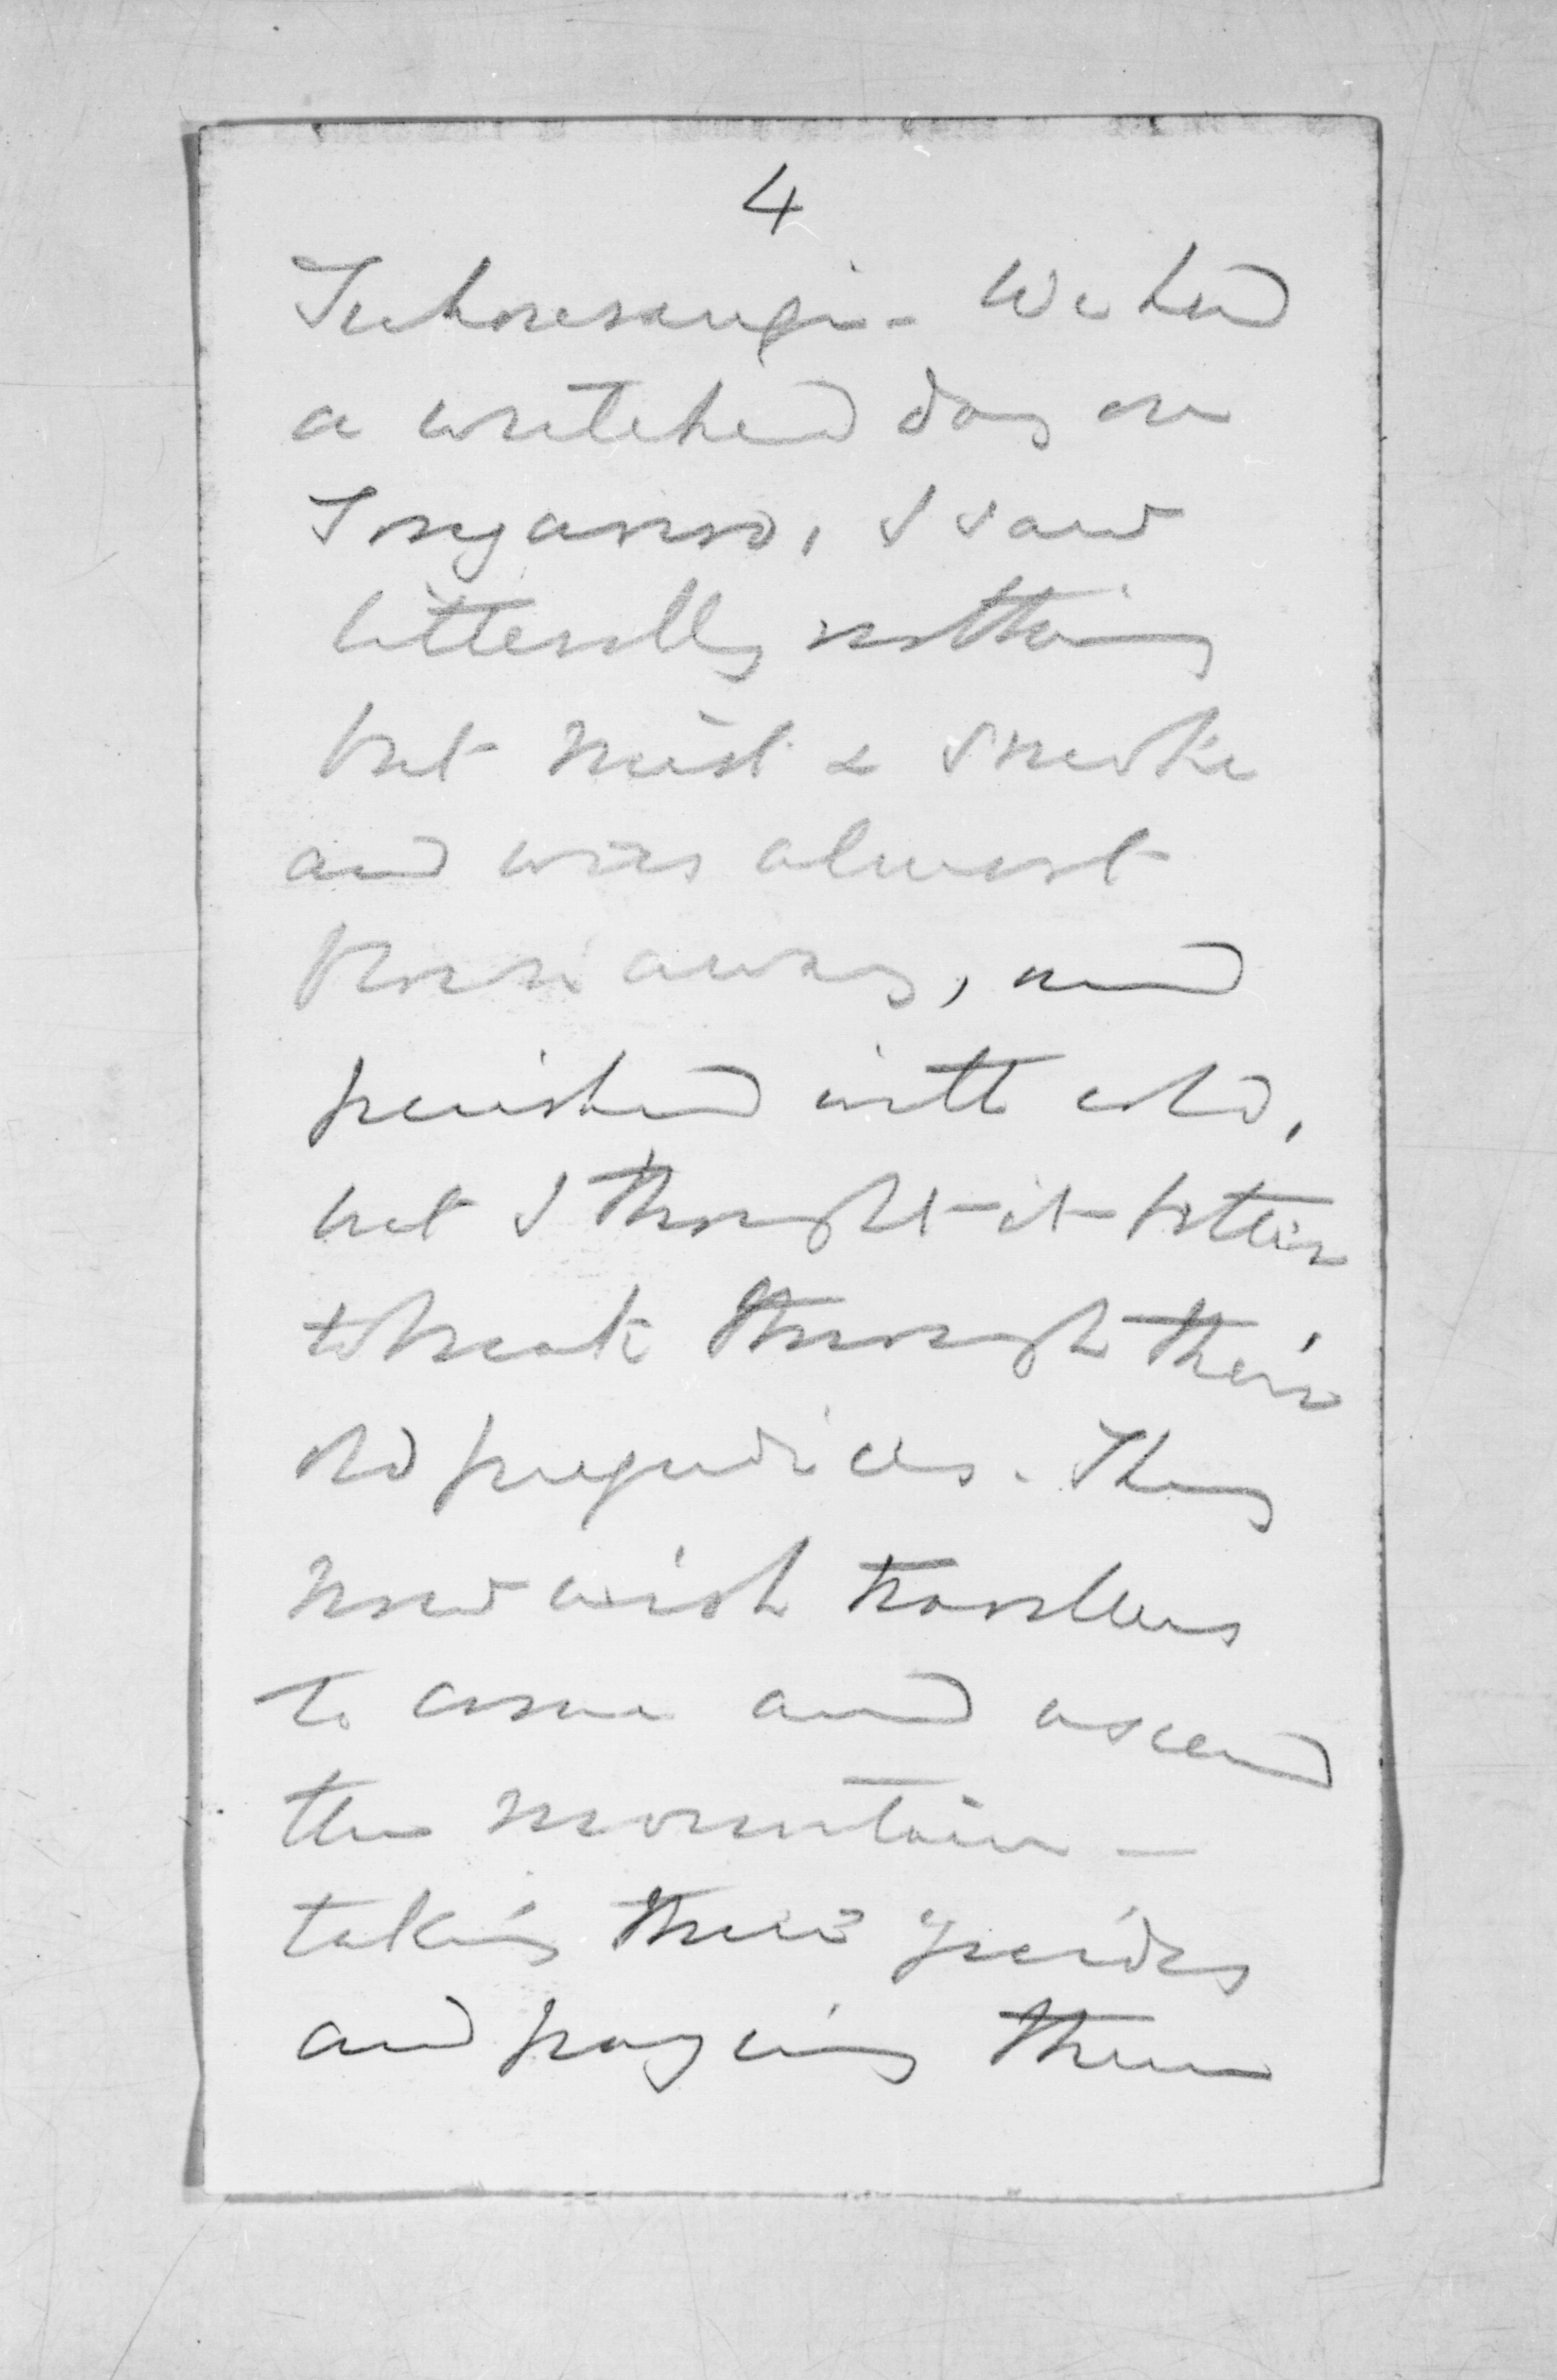 4
We had
a wretched day on
Tongariro, I saw
litterally nothing
but mist & smoke
and was almost
blown away, and
perished with cold,
but I thought it better
to break through their
old prejudices. They
now wish travellers
to come and ascend
the mountain —
taking their guides
and paying them